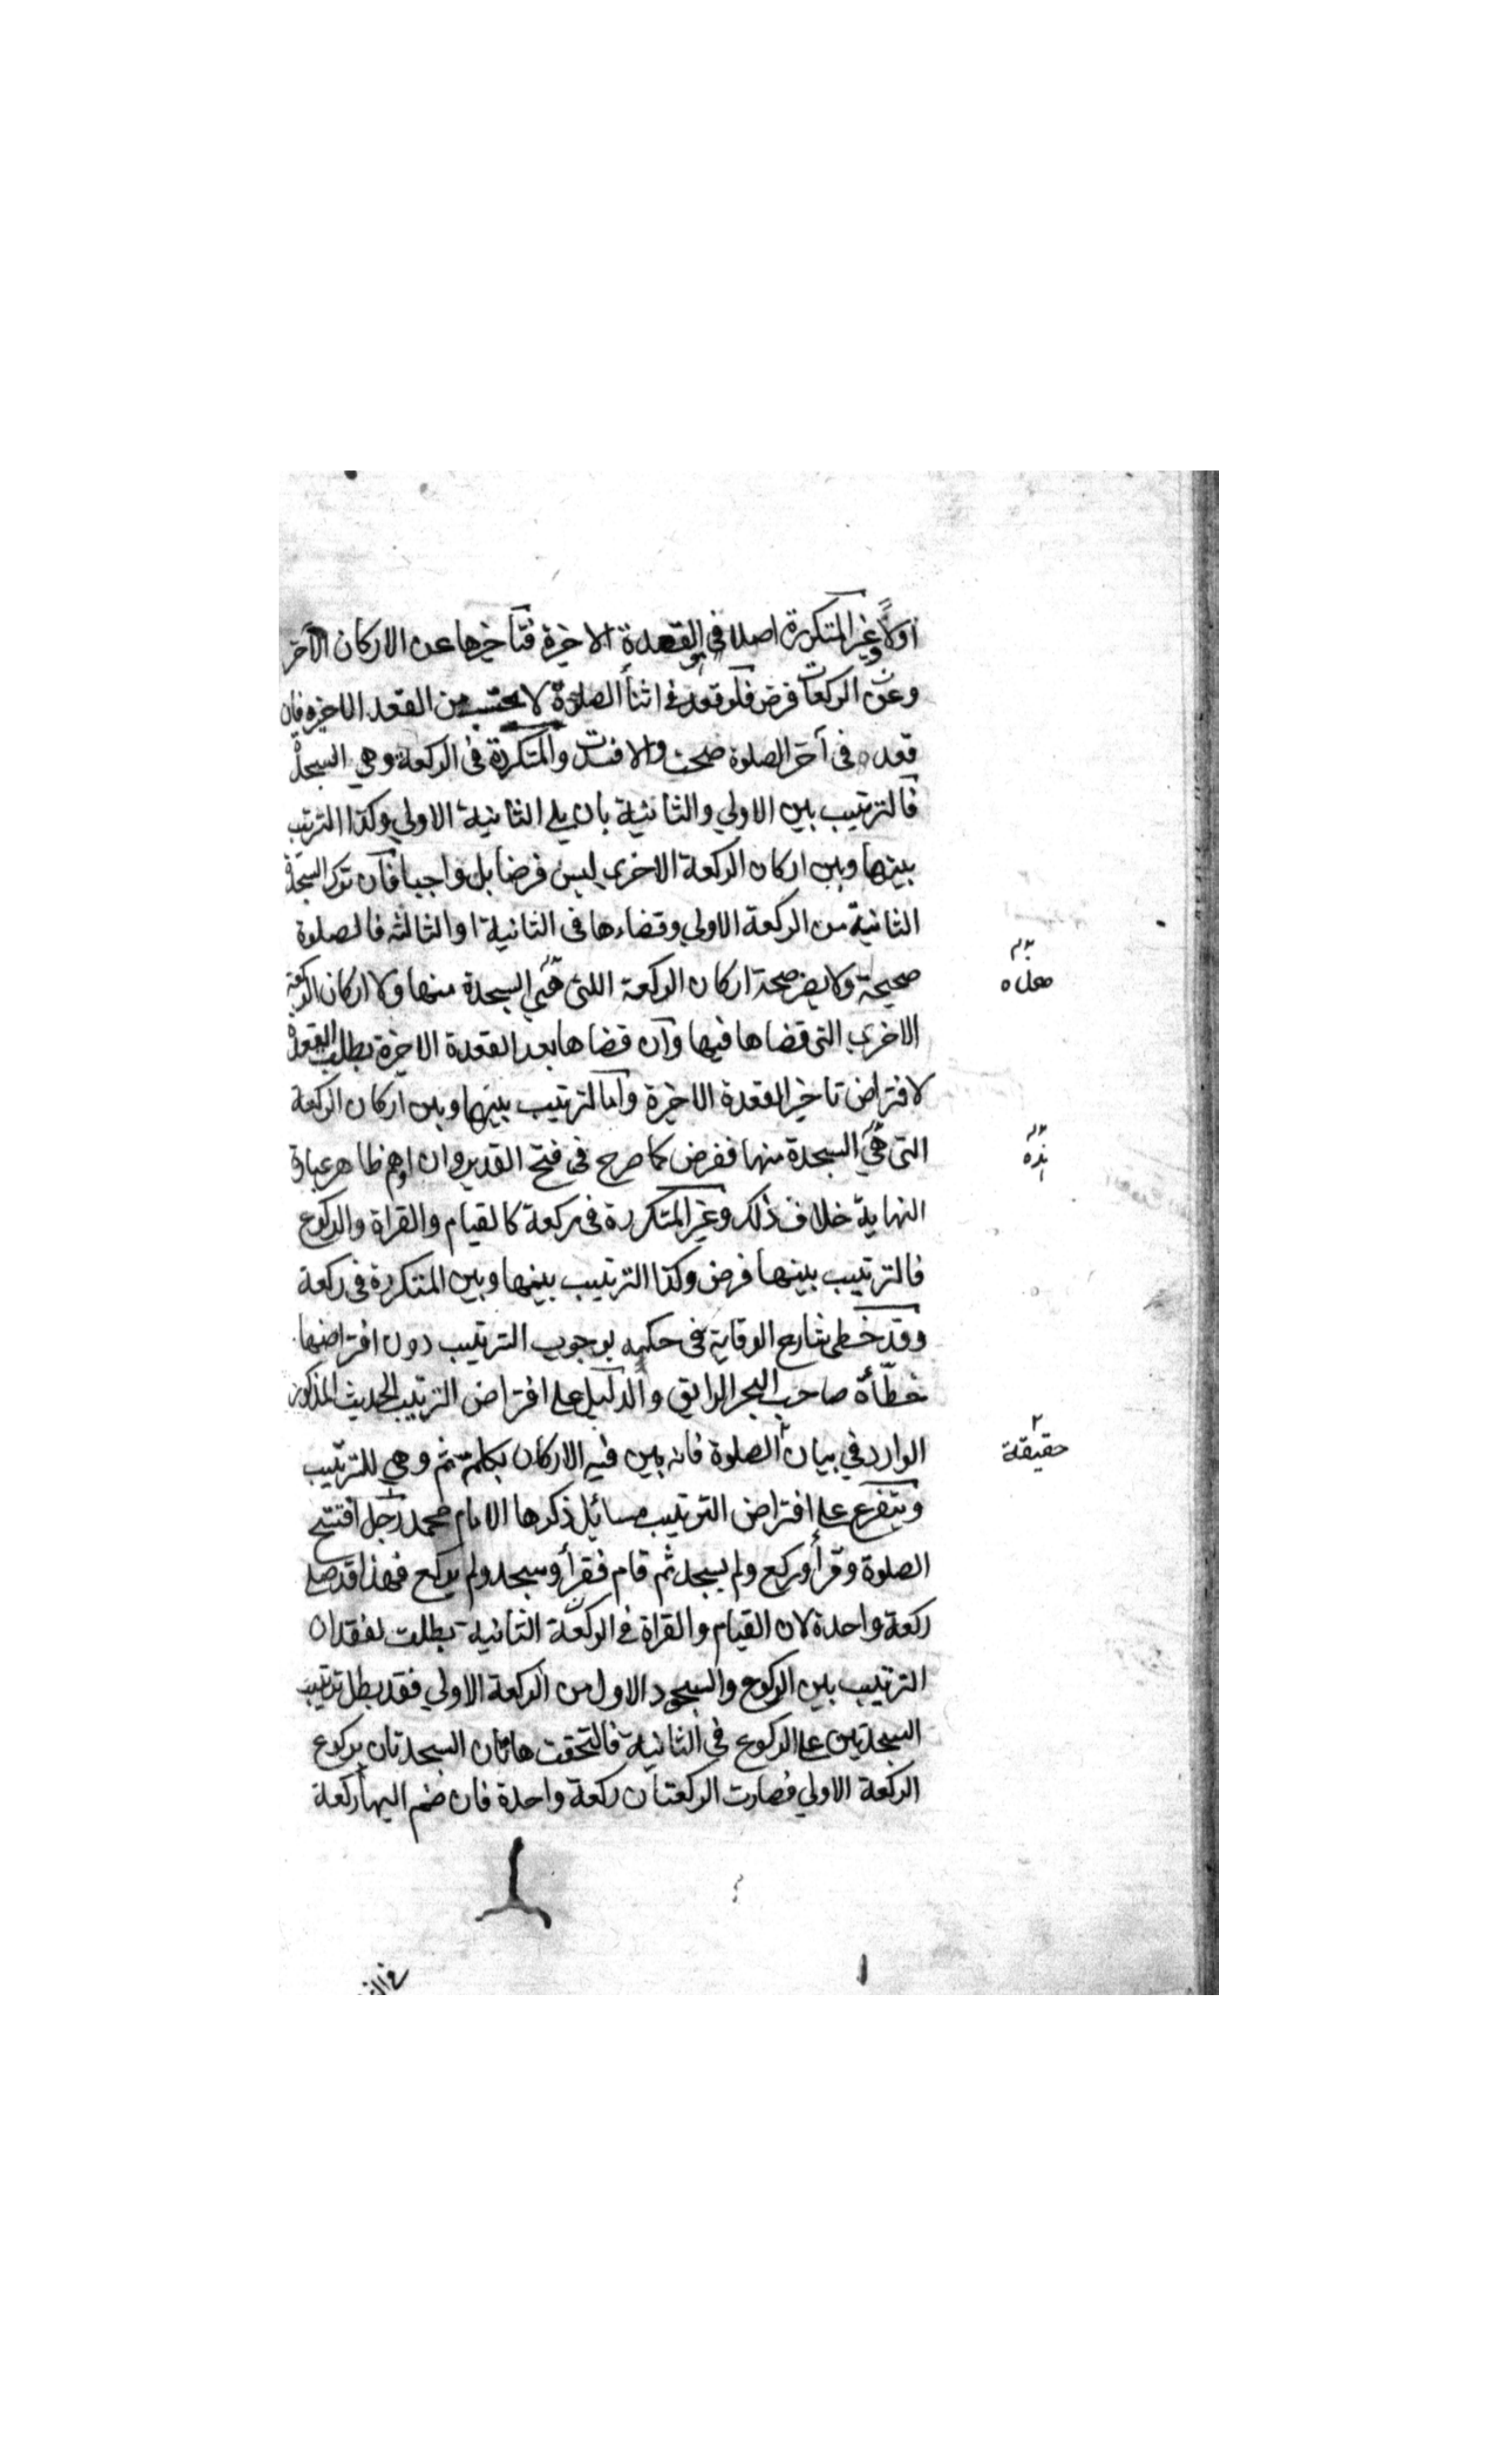 اولا وغير المتكررة اصلا في القعدة الاخيرة فتاخيرها عن الاركان الاخر
وعن الركعات فرض فلو قعد في اثنا الصلوة لا يحتسب من القعدة الاخيرة فان
قعد في آخر الصلوة صحت والا فسدت والمتكررة في الركعة وهي السجدة
فالترتيب بين الاولي والثانية بان يلي الثانية الاولي وكذا الترتيب
بينها وبين اركان الركعة الاخري ليس فرضا بل واجبا فان ترك السجدة
الثانية من الركعة الاولي وقضاءها في الثانية او الثالثة فالصلوة
صحيحة ولا يضر صحة اركان الركعة اللتى السجدة منها ولا اركان الركعة
الاخري التى قضاها فيها وان قضاها بعد القعدة الاخيرة بطلت القعدة
لافتراض تاخير القعدة الاخيرة واما الترتيب بينها وبين اركان الركعة
التى هي السجدة منها ففرض كما صرح في فتح القدير وان اوهم ظاهر عبارة
النهاية خلاف ذلك وغير المتكررة في ركعة كالقيام والقراة والركوع
فالترتيب بينها فرض وكذا الترتيب بينها وبين المتكررة في ركعة
وقد خطى شارح الوقاية في حكمه بوجوب الترتيب دون افتراضها
خطّأه صاحب البحر الرايق والدليل على افتراض الترتيب الحديث المذكور
الوارد في بيان الصلوة فانه بين فيه الاركان بكلمة ثم وهي للترتيب
ويتفرع على افتراض الترتيب مسائل ذكرها الامام محمد رجل افتتح
الصلوة وقرأ وركع ولم يسجد ثم قام فقرأ وسجد ولم يركع فهذا قد صلى
ركعة واحدة لان القيام والقراة في الركعة الثانية بطلت لفقدان
الترتيب بين الركوع والسجود الاول من الركعة الاولي فقد بطل ترتيب
السجدتين على الركوع في الثانية فالتحقت هاتان السجدتان بركوع
الركعة الاولي فصارت الركعتان ركعة واحدة فان ضم اليها ركعة
حقيقة